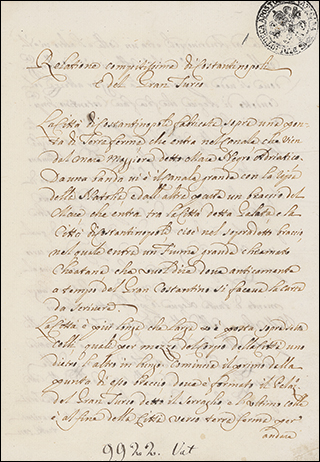 Relatione compitissima di Costantinopoli
e del Gran Turco
La Città di Costantinopoli fabricata sopra una pon
ta di Terra ferma che entra nel Canale che vien
del Mare Maggiore detto Mare Negro Adriatico
Da una banda vi è il Canale grande con la
delle e dall'altra parte un braccio del
Mare che entra tra la Città detta Galata e la
Città di Costantinopoli cioè nel sopradetto braccio,
nel quale entra un Fiume grande chiamato
che vuol dire dove anticamente
a tempo del Gran Costantino si faceva la carta
da scrivere.
La Città è più longa che larga è posta sopra sette
colli quali per mezzo del corpo della Città uno
dietro l'altro in longo. Comincia il primo dalla
punta di esso braccio dove è formato il Pala
del Gran Turco detto il Serraglio e l'ultimo colle
è al fine della Città verso terra ferma per
andare
9922. Vat